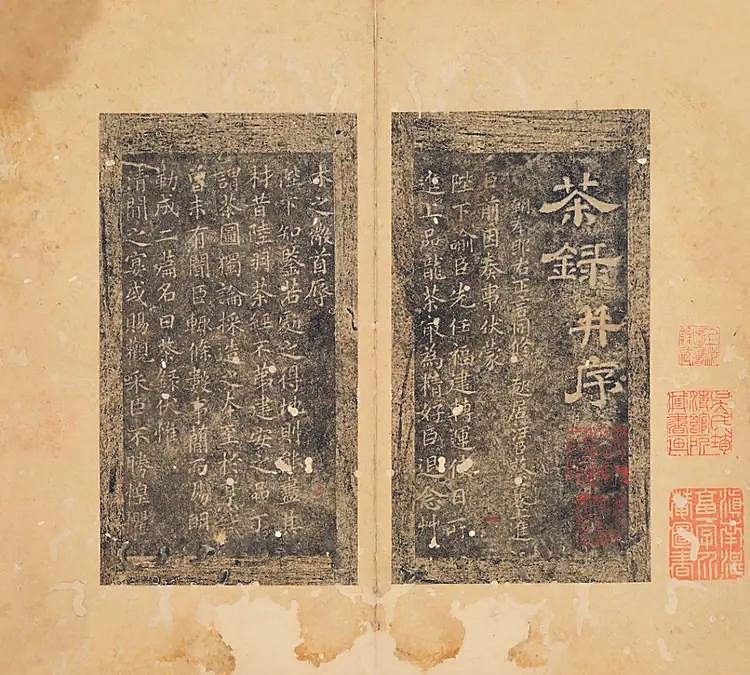 茶録并序
朝奉郎右正言同修起居注臣蔡襄上進
臣前因奏事伏蒙
陛下諭臣先任福建轉運使日所
進上品龍茶㝡為精好臣退念艸
木之微首辱
陛下知鑒若處之得地則能盡其
材昔陸羽茶經不第建安之品丁
謂茶圖獨論採造之本至於烹試
曾未有聞臣輒條數事簡而易明
勒成二篇名曰茶録伏惟
清閒之宴或賜觀采臣不勝惶懼